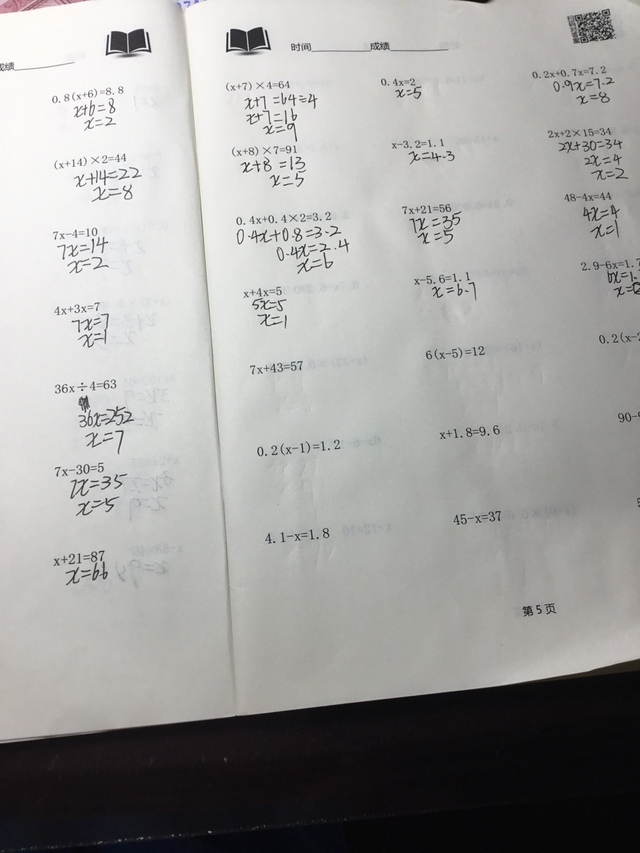 成绩
0.8(x+6)=8.8
x+6=8
x=2
(x+14)×2=44
x+14=22
x=8
7x-4=10
7x=14
x=2
4x+3x=7
7x=7
x=1
36x÷4=63
36x=252
x=7
7x-30=5
7x=35
x=5
x+21=87
x=66
时间 成绩
(x+7)×4=64
x+7=64=4
x+7=16
x=9
(x+8)×7=91
x+8=13
x=5
0.4x+0.4×2=3.2
0.4x+0.8=3.2
0.4x=2.4
x=6
x+4x=5
5x=5
x=1
7x+43=57
0.2(x-1)=1.2
4.1-x=1.8
0.4x=2
x=5
x-3.2=1.1
x=4.3
7x+21=56
7x=35
x=5
x-5.6=1.1
x=6.7
6(x-5)=12
x+1.8=9.6
45-x=37
0.2x+0.7x=7.2
0.9x=7.2
x=8
2x+2×15=34
2x+30=34
2x=4
x=2
48-4x=44
4x=4
x=1
2.9-6x=1.7
6x=1.
0.2(x-
90-
第5页